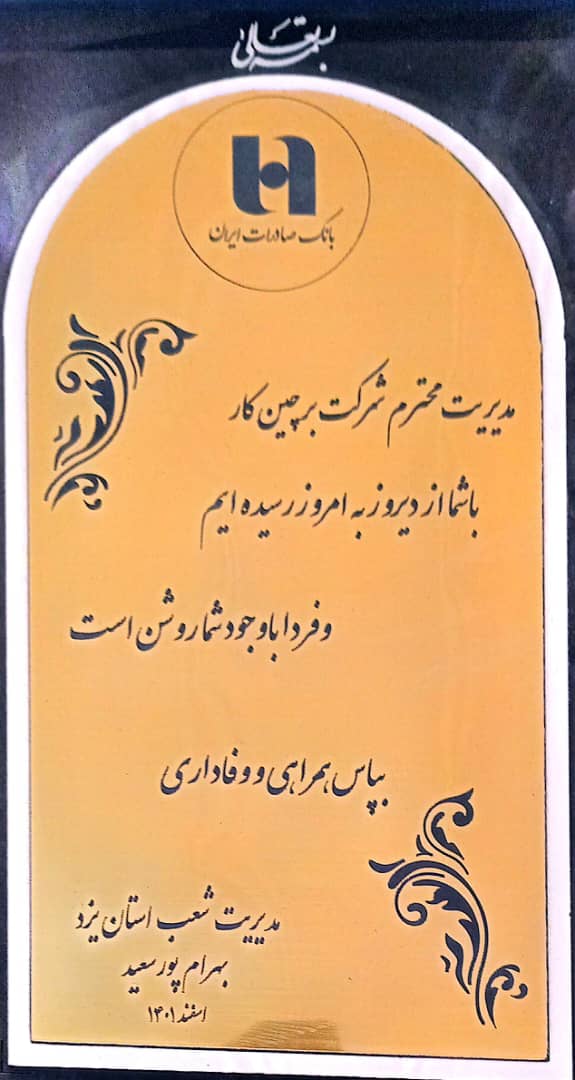 بسمه تعالی
بانک صادرات ایران
مدیریت محترم شرکت برچین کار
باشما از دیروز به امروز رسیده ایم
و فردا باوجود شما روشن است
بپاس همراهی و وفاداری
مدیریت شعب استان یزد
بهرام پورسعید
اسفند ۱۴۰۱